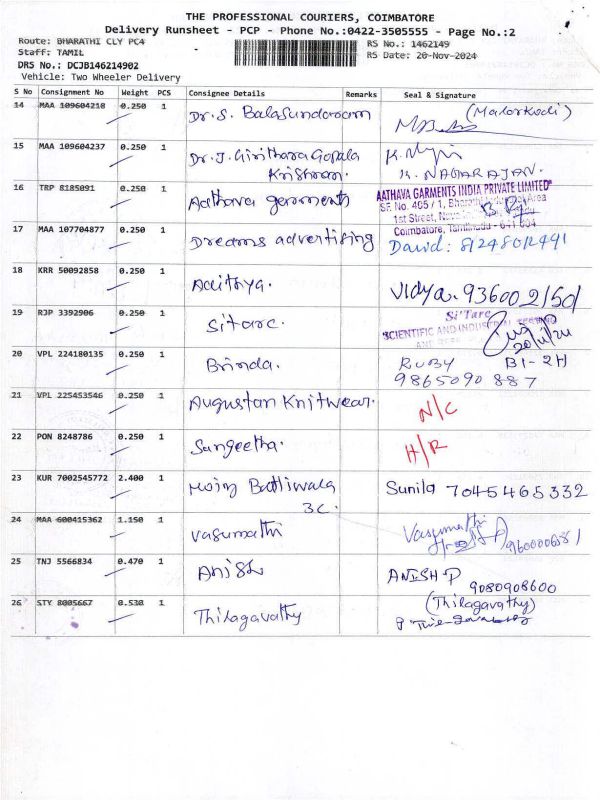 THE PROFESSIONAL COURIERS, COIMBATORE
Delivery Runsheet - PCP - Phone No.:0422-3505555 - Page No.:2
Route: BHARATHI CLY PC4
RS No.: 1462149
Staff: TAMIL
RS Date: 20-Nov-2024
DRS No.: DCJB146214902
Vehicle: Two Wheeler Delivery
S No Consignment No Weight PCS Consignee Details Remarks Seal & Signature
14 MAA 109604218 0.250 1 Dr. S. Balasundaram (Malarkodi)
15 MAA 109604237 0.250 1 Dr. J. Giritharagopala
Krishnan. K. NAGARAJAN.
16 TRP 8185091 0.250 1 Aathava garments AATHAVA GARMENTS INDIA PRIVATE LIMITED
SF. No. 405 / 1, Area
1st Street,
Coimbatore, Tamilnadu - 641 004
17 MAA 107704877 0.250 1 Dreams advertising David: 81248012491
18 KRR 50092858 0.250 1 Adithya. Vidya. 936002150
19 RJP 3392906 0.250 1 Sitarc. Si'Tarc
SCIENTIFIC AND INDUSTRIAL TESTING
20/11/24
20 VPL 224180135 0.250 1 Brinda. RUBY B1-2H
9865090887
21 VPL 225453546 0.250 1 Augustan Knitwear. N/C
22 PON 8248786 0.250 1 Sangeetha. H/R
23 KUR 7002545772 2.400 1 Batliwala Sunila 7045465332
3C.
24 MAA 600415362 1.150 1 Vasumathi Vasumathi
25 TNJ 5566834 0.470 1 Anish ANISH-P
9080908600
26 STY 8005667 0.530 1 Thilagavathy (Thilagavathy)